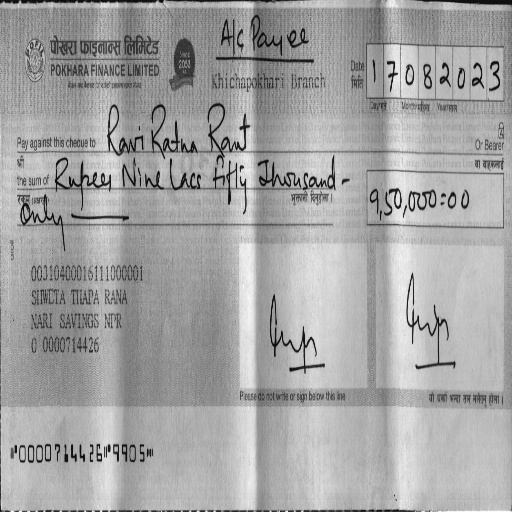 A/c Payee
पोखरा फाइनान्स लिमिटेड
POKHARA FINANCE LIMITED
Since
2053
Khichapokhari Branch
Date
मिति
17082023
Pay against this cheque to Ravi Ratna Rant
Or Bearer
श्री
वा वाहकलाई
the sum of Rupees Nine Lacs Fifty Thousand -
भुक्तानी दिनुहोला ।
9,50,000=00
Only
00310400016111000001
SHWETA THAPA RANA
NARI SAVINGS NPR
0 0000714426
Please do not write or sign below this line
⑈0000714426⑈9905⑈